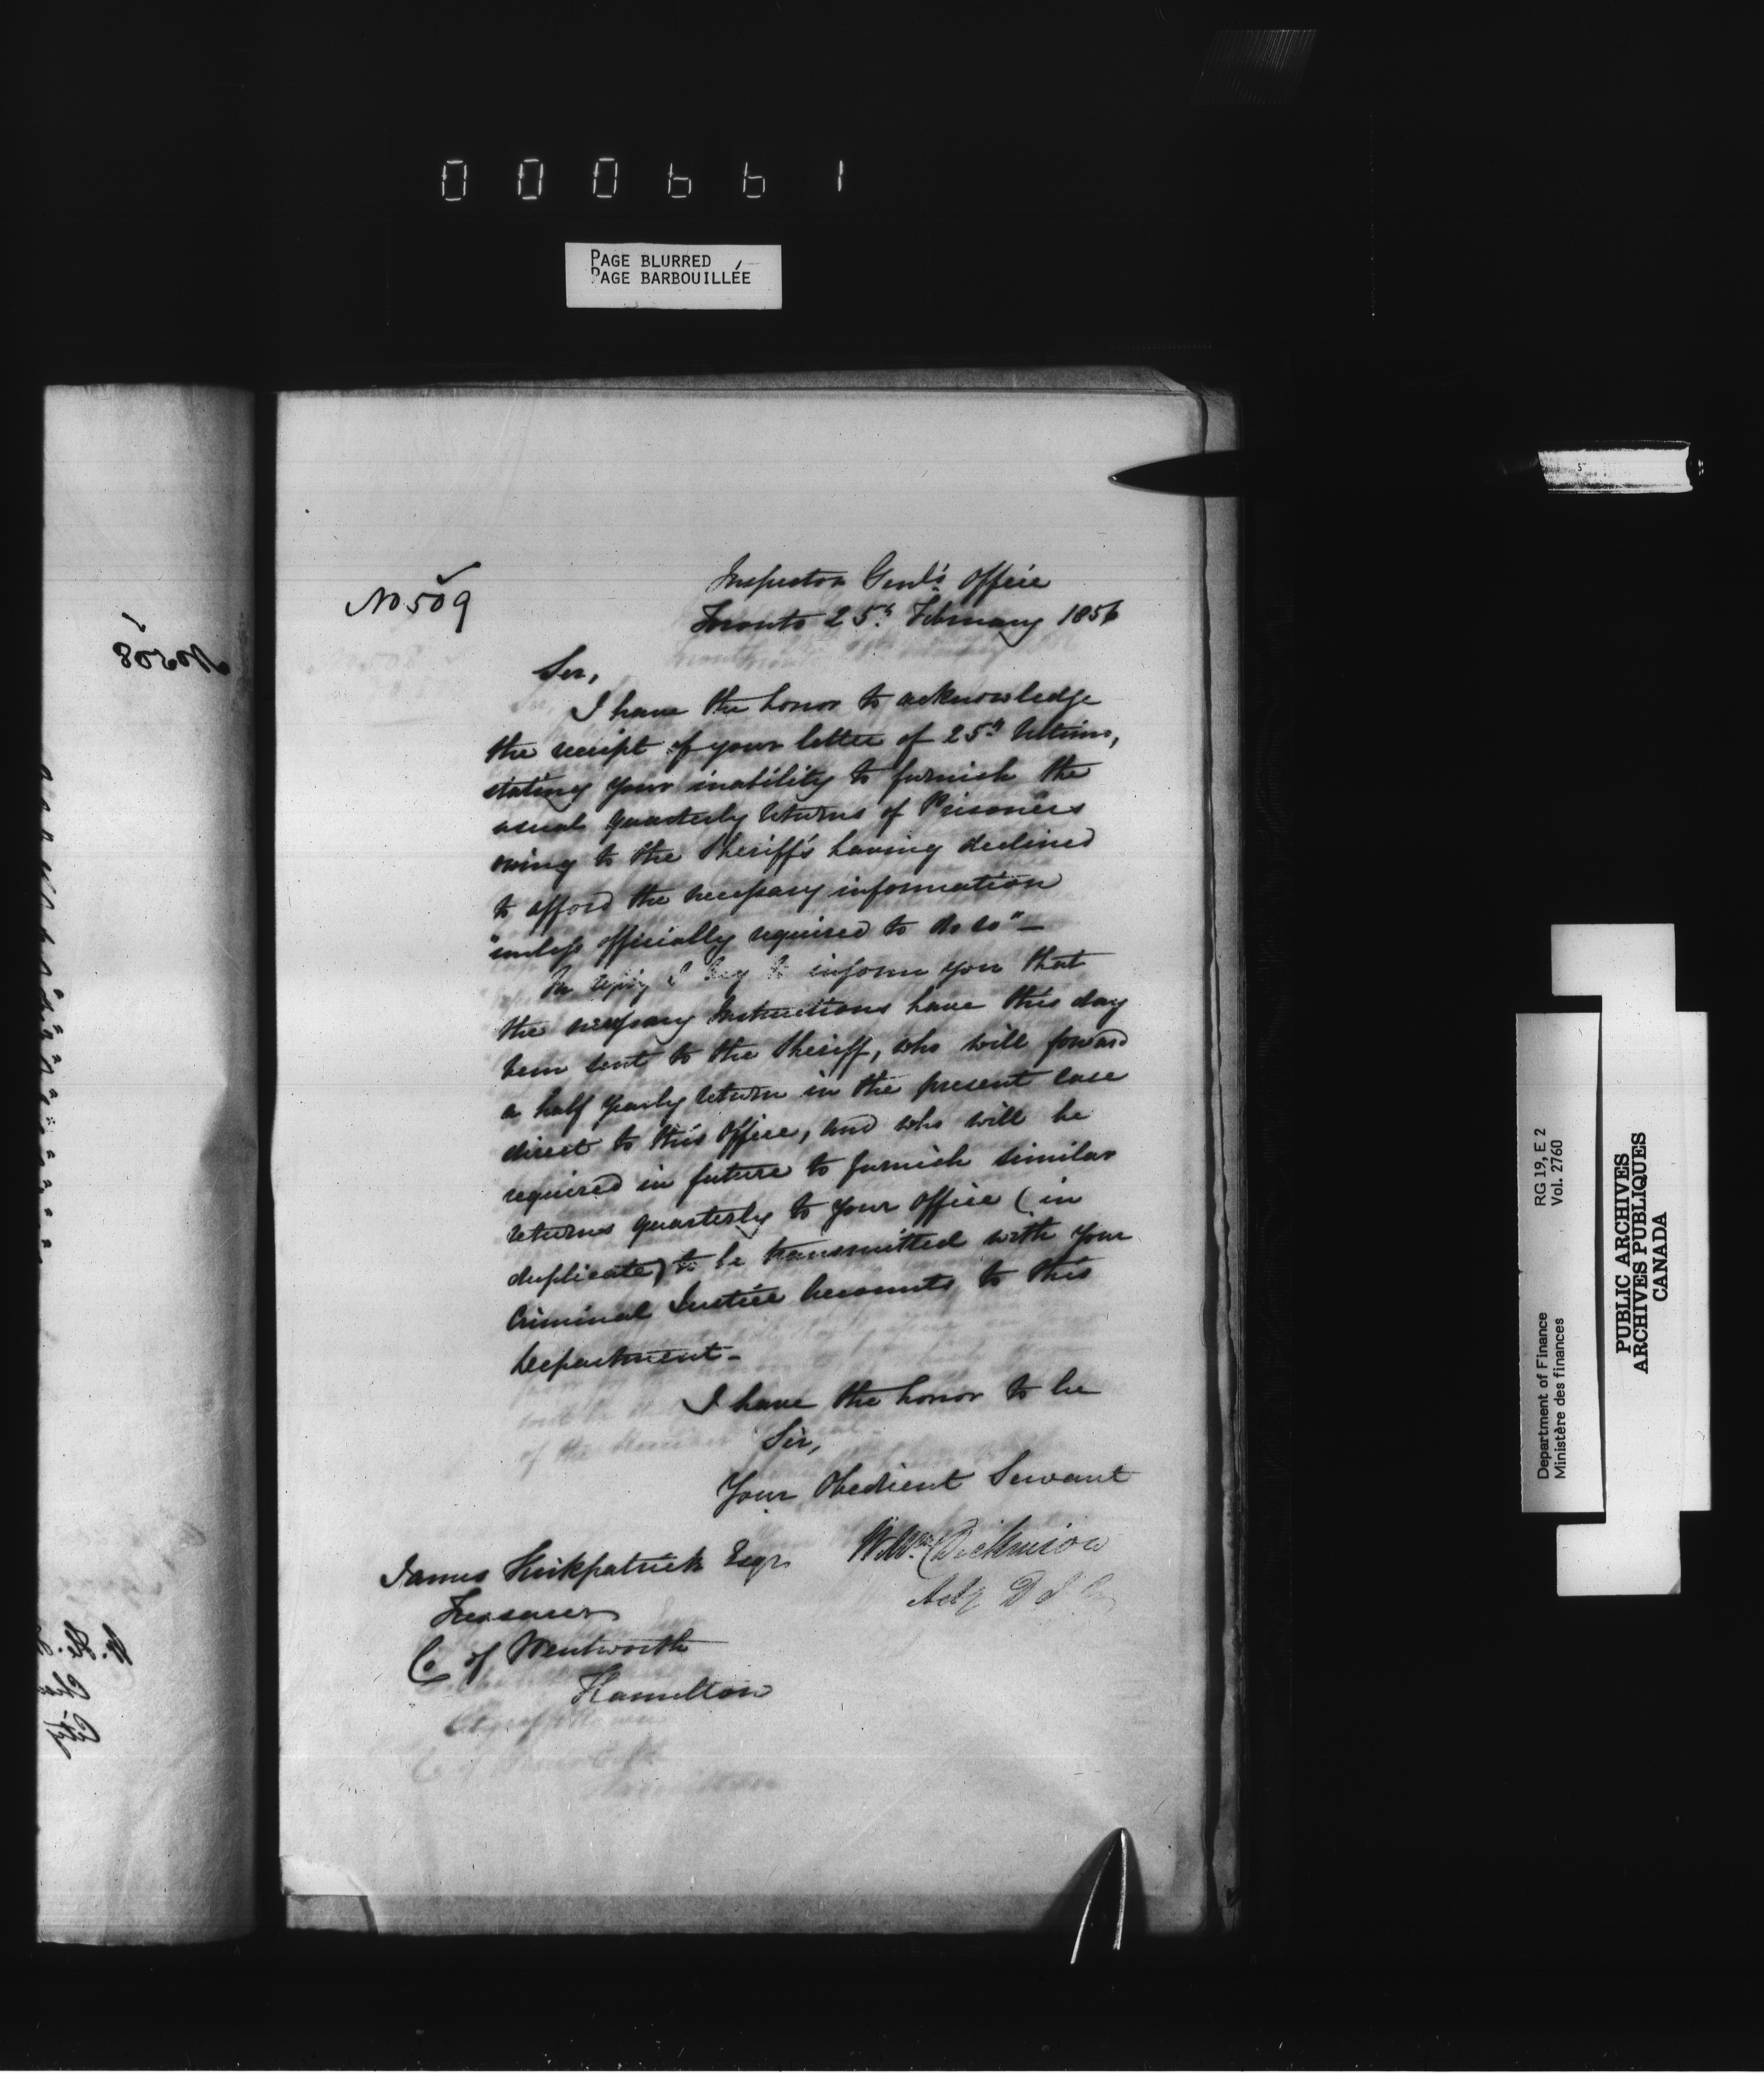 000661
PAGE BLURRED
PAGE BARBOUILLÉE
No 509
Inspector Genl's Office
Toronto 25th February 1856
Sir,
I have the honor to acknowledge
the receipt of your letter of 25th Ultimo,
stating your inability to furnish the
usual quarterly returns of Prisoners
owing to the Sheriff's having declined
to afford the necessary information
"unless officially required to do so" —
In reply I beg to inform you that
the necessary Instructions have this day
been sent to the Sheriff, who will forward
a half yearly return in the present case
direct to this Office, and who will be
required in future to furnish similar
returns quarterly to your office (in
duplicate) to be transmitted with your
Criminal Justice Accounts to this
Department —
I have the honor to be
Sir,
Your Obedient Servant
Wm Dickinson
Actg D I G
James Kirkpatrick Esqr
Treasurer
Co of Wentworth
Hamilton
No 508
RG 19, E 2
Vol. 2760
Department of Finance
Ministère des finances
PUBLIC ARCHIVES
ARCHIVES PUBLIQUES
CANADA